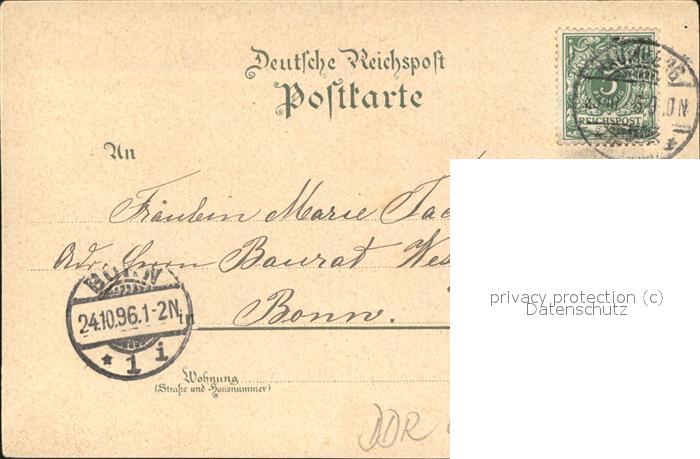 Deutsche Reichspost
Postkarte
5
REICHSPOST
An
Fräulein Marie
Adr. Herrn Baurat
Bonn.
in
BONN
24.10.96.1-2N
* 1 i
Wohnung
(Straße und Hausnummer)
privacy protection (c)
Datenschutz
DDR